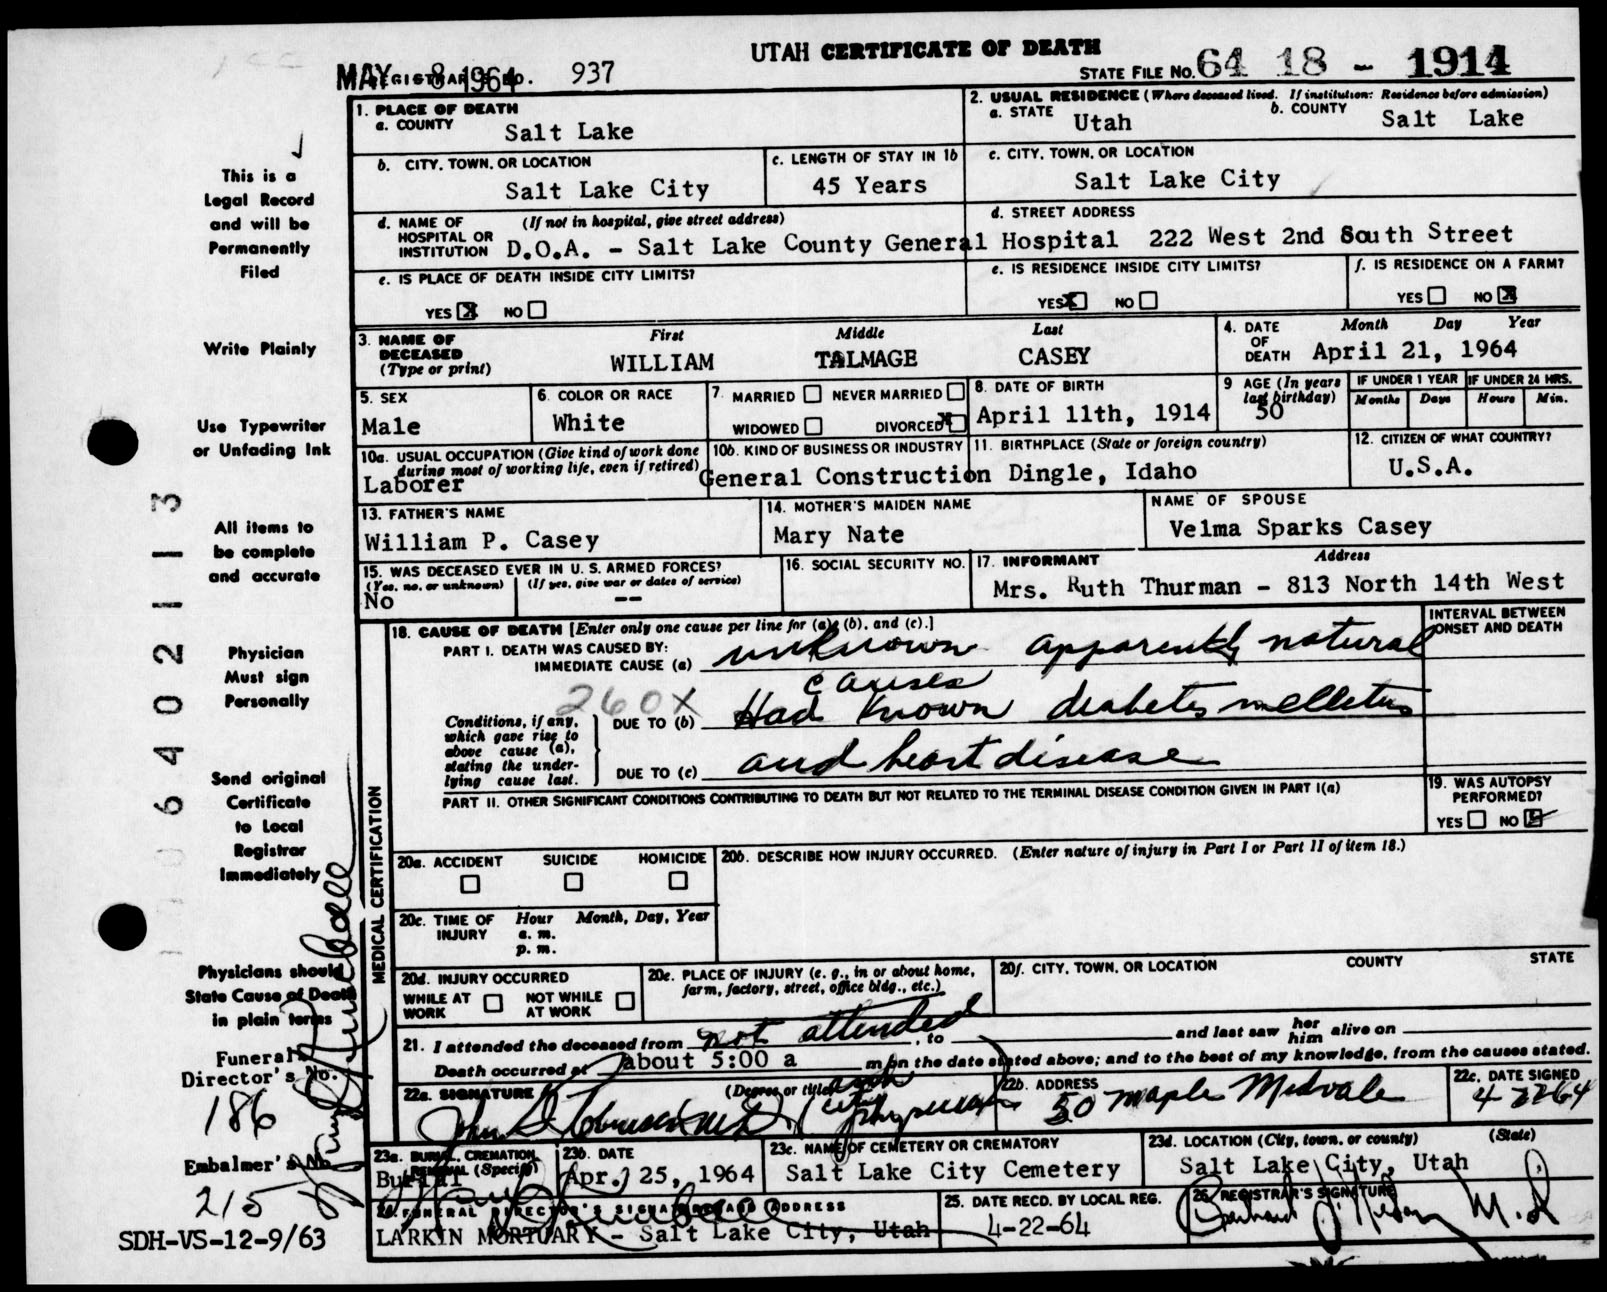 UTAH CERTIFICATE OF DEATH
MAY 8 1964
REGISTRAR'S NO. 937
STATE FILE NO. 64 18 - 1914
1. PLACE OF DEATH
a. COUNTY
Salt Lake
2. USUAL RESIDENCE (Where deceased lived. If institution: Residence before admission)
a. STATE
Utah
b. COUNTY
Salt Lake
b. CITY, TOWN, OR LOCATION
Salt Lake City
c. LENGTH OF STAY IN 1b
45 Years
c. CITY, TOWN, OR LOCATION
Salt Lake City
d. NAME OF HOSPITAL OR INSTITUTION
(If not in hospital, give street address)
D.O.A. - Salt Lake County General Hospital
d. STREET ADDRESS
222 West 2nd South Street
e. IS PLACE OF DEATH INSIDE CITY LIMITS?
YES X NO
e. IS RESIDENCE INSIDE CITY LIMITS?
YES X NO
f. IS RESIDENCE ON A FARM?
YES NO X
3. NAME OF DECEASED
(Type or print)
First Middle Last
WILLIAM TALMAGE CASEY
4. DATE OF DEATH
Month Day Year
April 21, 1964
5. SEX
Male
6. COLOR OR RACE
White
7. MARRIED NEVER MARRIED
WIDOWED DIVORCED X
8. DATE OF BIRTH
April 11th, 1914
9 AGE (In years last birthday)
50
IF UNDER 1 YEAR
Months Days
IF UNDER 24 HRS.
Hours Min.
10a. USUAL OCCUPATION (Give kind of work done during most of working life, even if retired)
Laborer
10b. KIND OF BUSINESS OR INDUSTRY
General Construction
11. BIRTHPLACE (State or foreign country)
Dingle, Idaho
12. CITIZEN OF WHAT COUNTRY?
U.S.A.
13. FATHER'S NAME
William P. Casey
14. MOTHER'S MAIDEN NAME
Mary Nate
NAME OF SPOUSE
Velma Sparks Casey
15. WAS DECEASED EVER IN U. S. ARMED FORCES?
(Yes, no, or unknown) (If yes, give war or dates of service)
No --
16. SOCIAL SECURITY NO.
17. INFORMANT Address
Mrs. Ruth Thurman - 813 North 14th West
18. CAUSE OF DEATH [Enter only one cause per line for (a), (b), and (c).]
INTERVAL BETWEEN ONSET AND DEATH
PART I. DEATH WAS CAUSED BY:
IMMEDIATE CAUSE (a) unknown apparently natural
causes
260X
Conditions, if any, which gave rise to above cause (a), stating the underlying cause last.
DUE TO (b) Had known diabetes melletus
DUE TO (c) and heart disease
PART II. OTHER SIGNIFICANT CONDITIONS CONTRIBUTING TO DEATH BUT NOT RELATED TO THE TERMINAL DISEASE CONDITION GIVEN IN PART I(a)
19. WAS AUTOPSY PERFORMED?
YES NO
MEDICAL CERTIFICATION
20a. ACCIDENT SUICIDE HOMICIDE
20b. DESCRIBE HOW INJURY OCCURRED. (Enter nature of injury in Part I or Part II of item 18.)
20c. TIME OF INJURY
Hour Month, Day, Year
a. m.
p. m.
20d. INJURY OCCURRED
WHILE AT WORK NOT WHILE AT WORK
20e. PLACE OF INJURY (e. g., in or about home, farm, factory, street, office bldg., etc.)
20f. CITY, TOWN, OR LOCATION COUNTY STATE
21. I attended the deceased from not attended, to and last saw her him alive on
Death occurred at about 5:00 a m on the date stated above; and to the best of my knowledge, from the causes stated.
22a. SIGNATURE (Degree or title)
22b. ADDRESS
50 Maple Midvale
22c. DATE SIGNED
4-22-64
23a. BURIAL, CREMATION, REMOVAL (Specify)
Burial
23b. DATE
Apr. 25, 1964
23c. NAME OF CEMETERY OR CREMATORY
Salt Lake City Cemetery
23d. LOCATION (City, town, or county) (State)
Salt Lake City, Utah
24. FUNERAL DIRECTOR'S SIGNATURE AND ADDRESS
LARKIN MORTUARY - Salt Lake City, Utah
25. DATE RECD. BY LOCAL REG.
4-22-64
26. REGISTRAR'S SIGNATURE
M.D.
This is a
Legal Record
and will be
Permanently
Filed
Write Plainly
Use Typewriter
or Unfading Ink
All items to
be complete
and accurate
Physician
Must sign
Personally
Send original
Certificate
to Local
Registrar
Immediately
Physicians should
State Cause of Death
in plain terms
Funeral
Director's No.
186
Embalmer's No.
215
SDH-VS-12-9/63